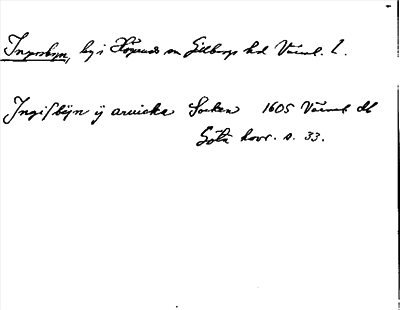 Ingersbyn, by i Högeruds sn Gillbergs hd Värml. l.
Ingissbÿn ÿ arvicka Socken 1605 Värml db
Göta hovr. s. 33.